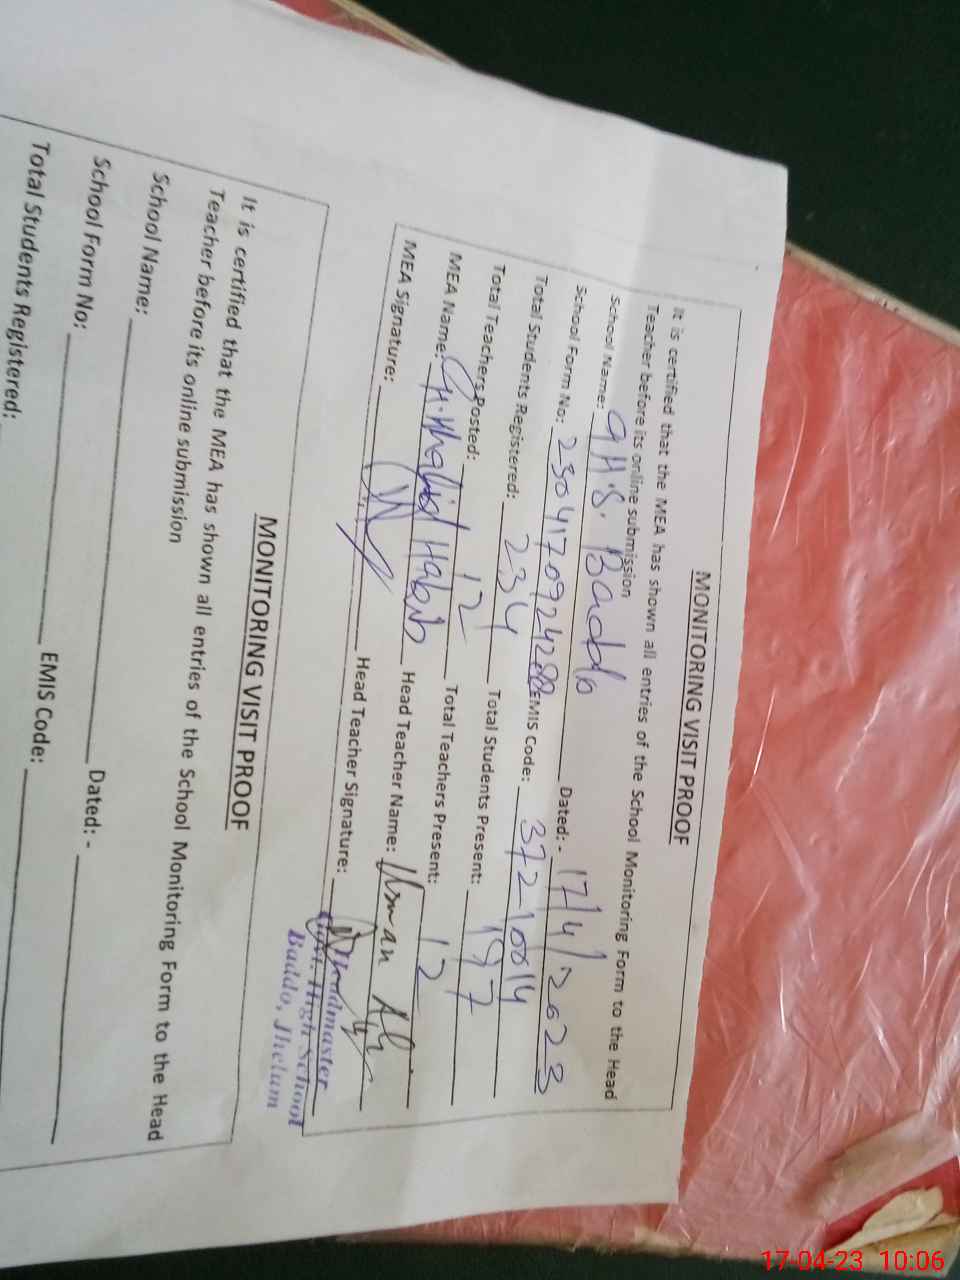 MONITORING VISIT PROOF
It is certified that the MEA has shown all entries of the School Monitoring Form to the Head
Teacher before its online submission
School Name: G.H.S. Baddo
School Form No: 2304170924288 Dated: - 17/4/2023
Total Students Registered: 234 EMIS Code: 37210014
Total Teachers Posted: 12 Total Students Present: 197
MEA Name: Gh.Khalid Habib Total Teachers Present: 12
MEA Signature: Head Teacher Name: Usman Ali
Head Teacher Signature:
Headmaster
Govt. High School
Baddo, Jhelum
MONITORING VISIT PROOF
It is certified that the MEA has shown all entries of the School Monitoring Form to the Head
Teacher before its online submission
School Name:
School Form No: Dated: -
Total Students Registered: EMIS Code:
17-04-23 10:06